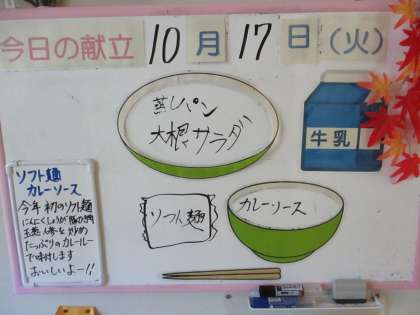 今日の献立 10月17日(火)
蒸しパン
大根サラダ
牛乳
ソフト麺
カレーソース
ソフト麺
カレーソース
今年初のソフト麺
にんにくしょうが豚肉
玉葱人参を炒め
たっぷりのカレールー
で味付します
おいしいよー!!